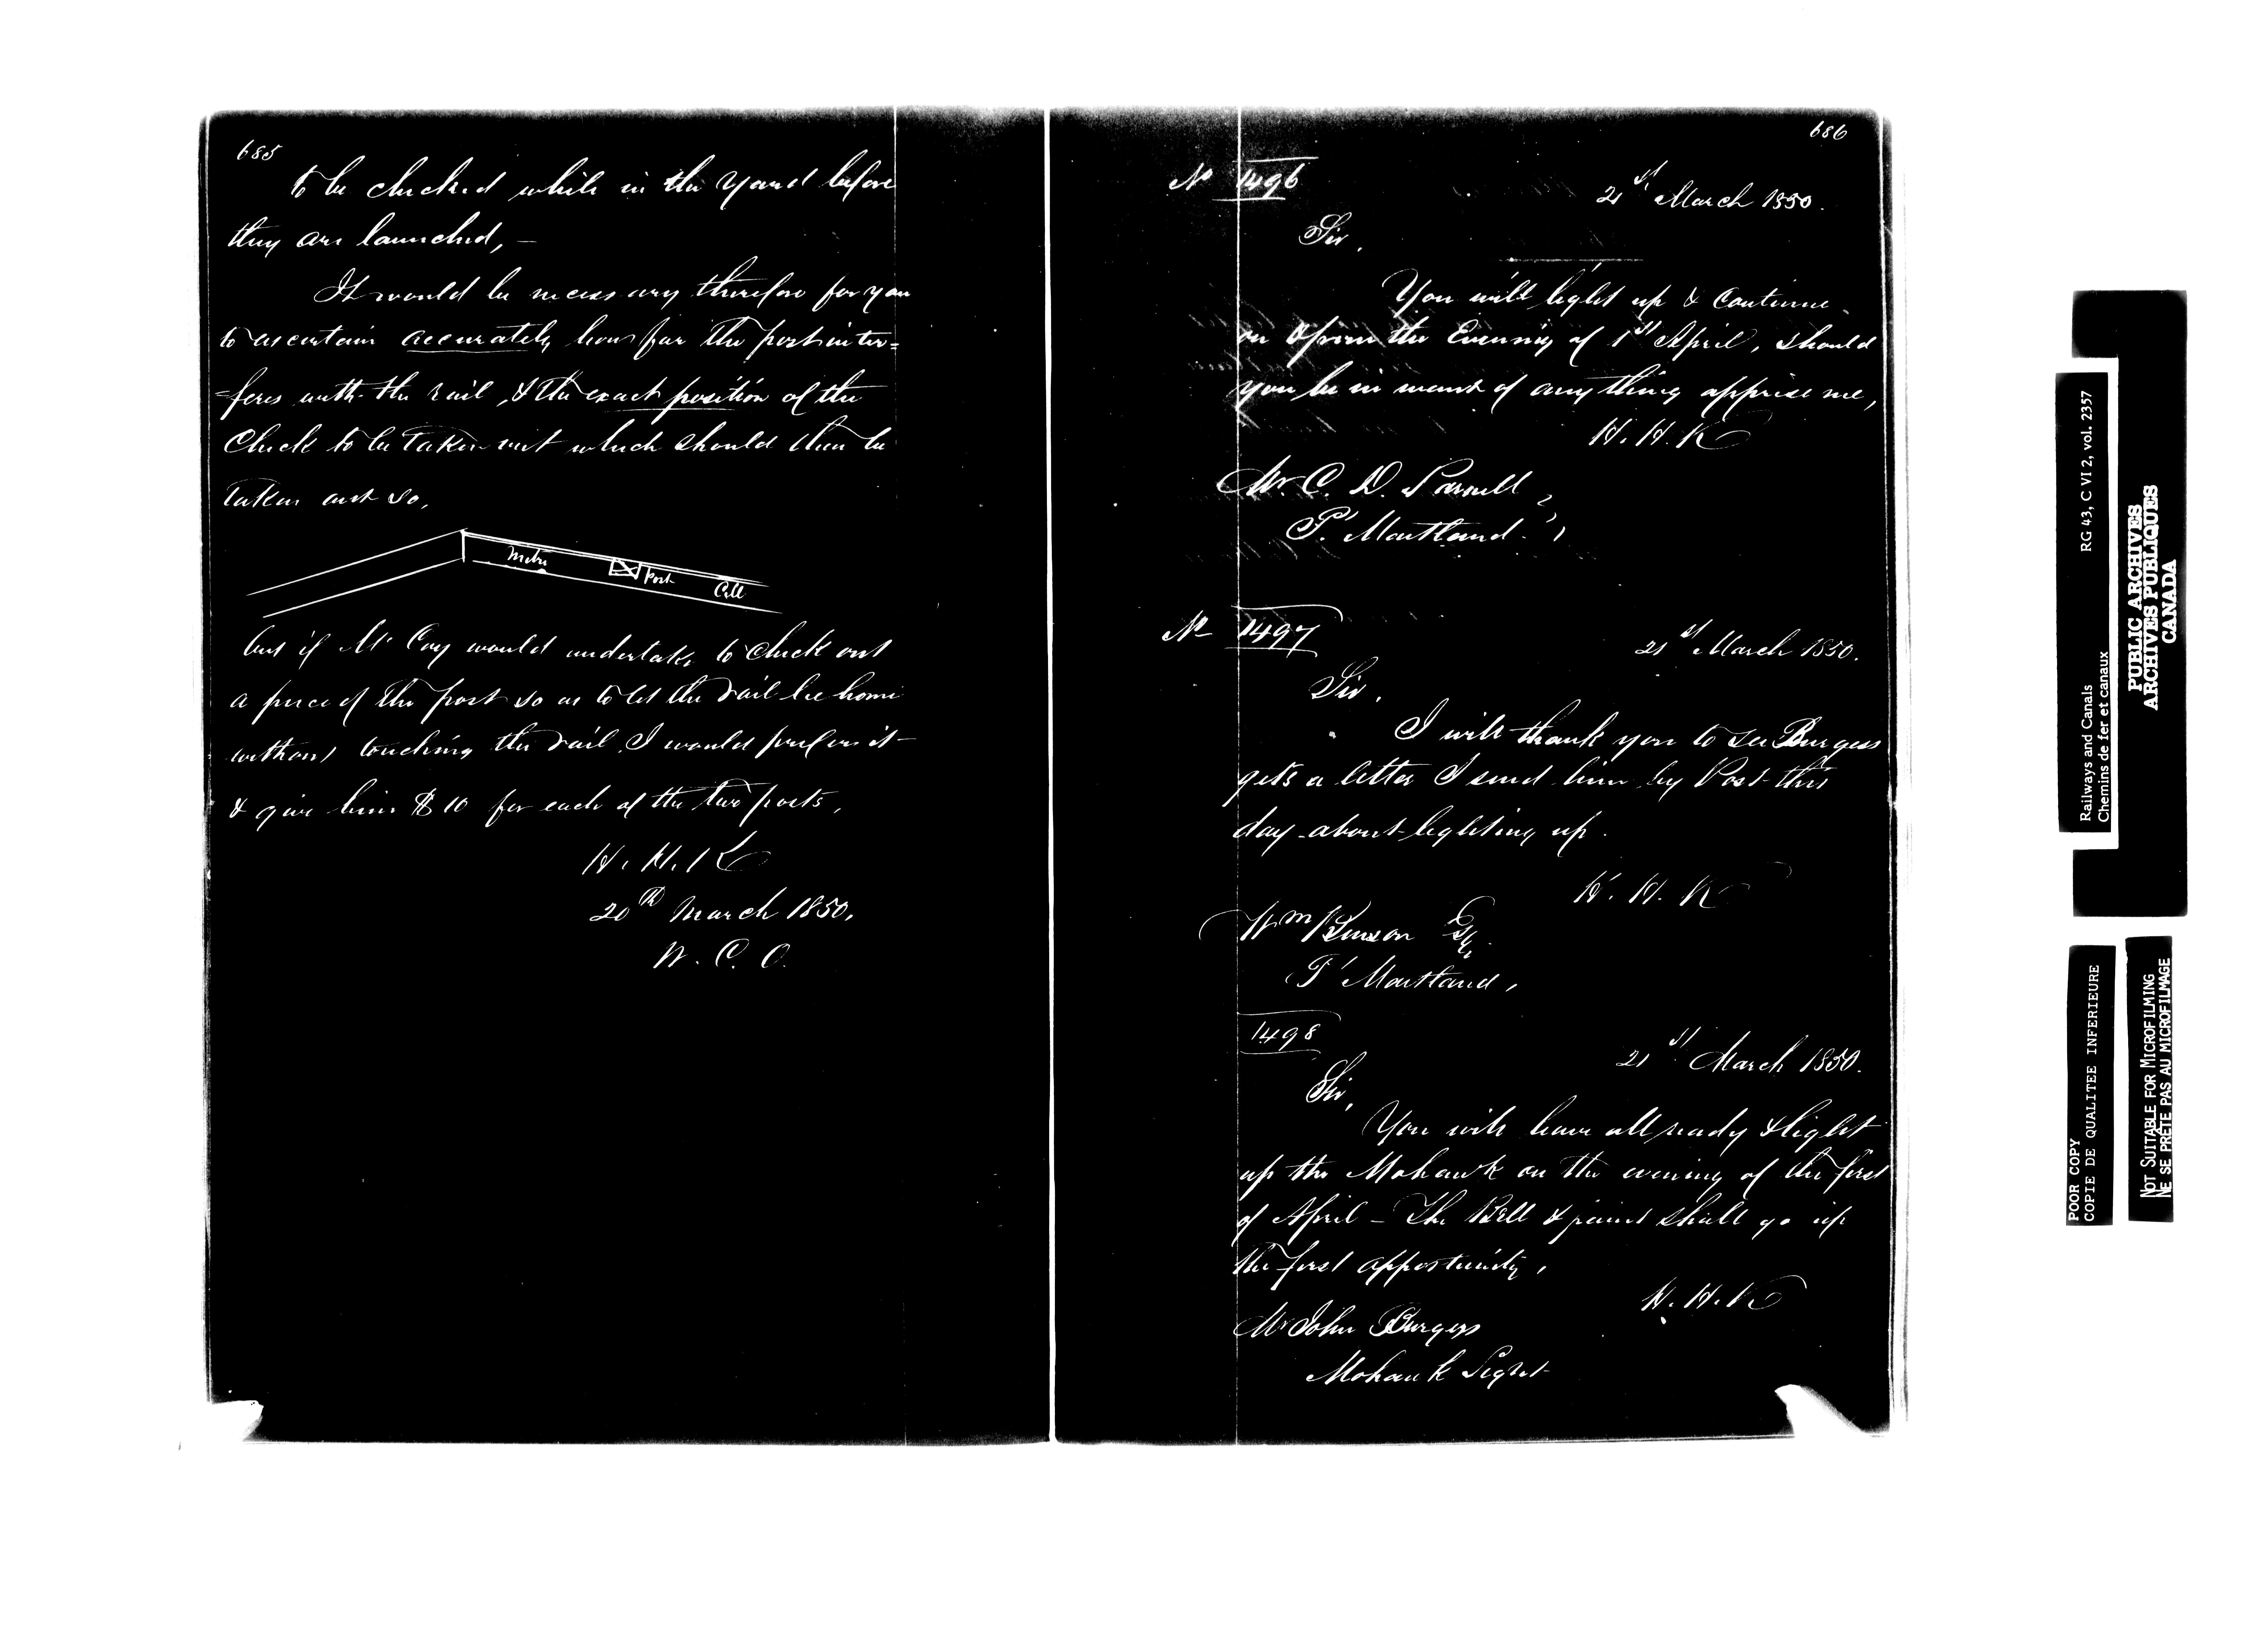 685
to be checked while in the yard before
they are launched, —
It would be necessary therefore for you
to ascertain accurately how far the post inter=
=feres with the rail, & the exact position of the
Check to be taken out which should then be
taken out so,
Mitre
Post
Cill
but if Mr Coy would undertake to check out
a piece of the post so as to let the rail lie home
without touching the rail I would prefer it –
& give him $10 for each of the two posts,
H. H. K
20th March 1850.
W. C. O.
686
No 1496
21st March 1850.
Sir,
You will light up & Continue
on from the Evening of 1st April, should
you be in want of any thing apprise me,
H. H. K
Mr C. D.
Pt Maitland
No 1497
21st March 1850.
Sir,
I will thank you to see Burgess
gets a letter I send him by Post this
day about lighting up.
H. H. K
Wm Esq.
Pt Maitland,
1498
21st March 1850.
Sir,
You will have all ready & light
up the Mohawk on the evening of the first
of April – The Bell & paint shall go up
the first opportunity,
H. H. K
Mr John Burgess
Mohawk Light
RG 43, C VI 2, vol. 2357
Railways and Canals
Chemins de fer et canaux
PUBLIC ARCHIVES
ARCHIVES PUBLIQUES
CANADA
POOR COPY
COPIE DE QUALITEE INFERIEURE
NOT SUITABLE FOR MICROFILMING
NE SE PRÊTE PAS AU MICROFILMAGE